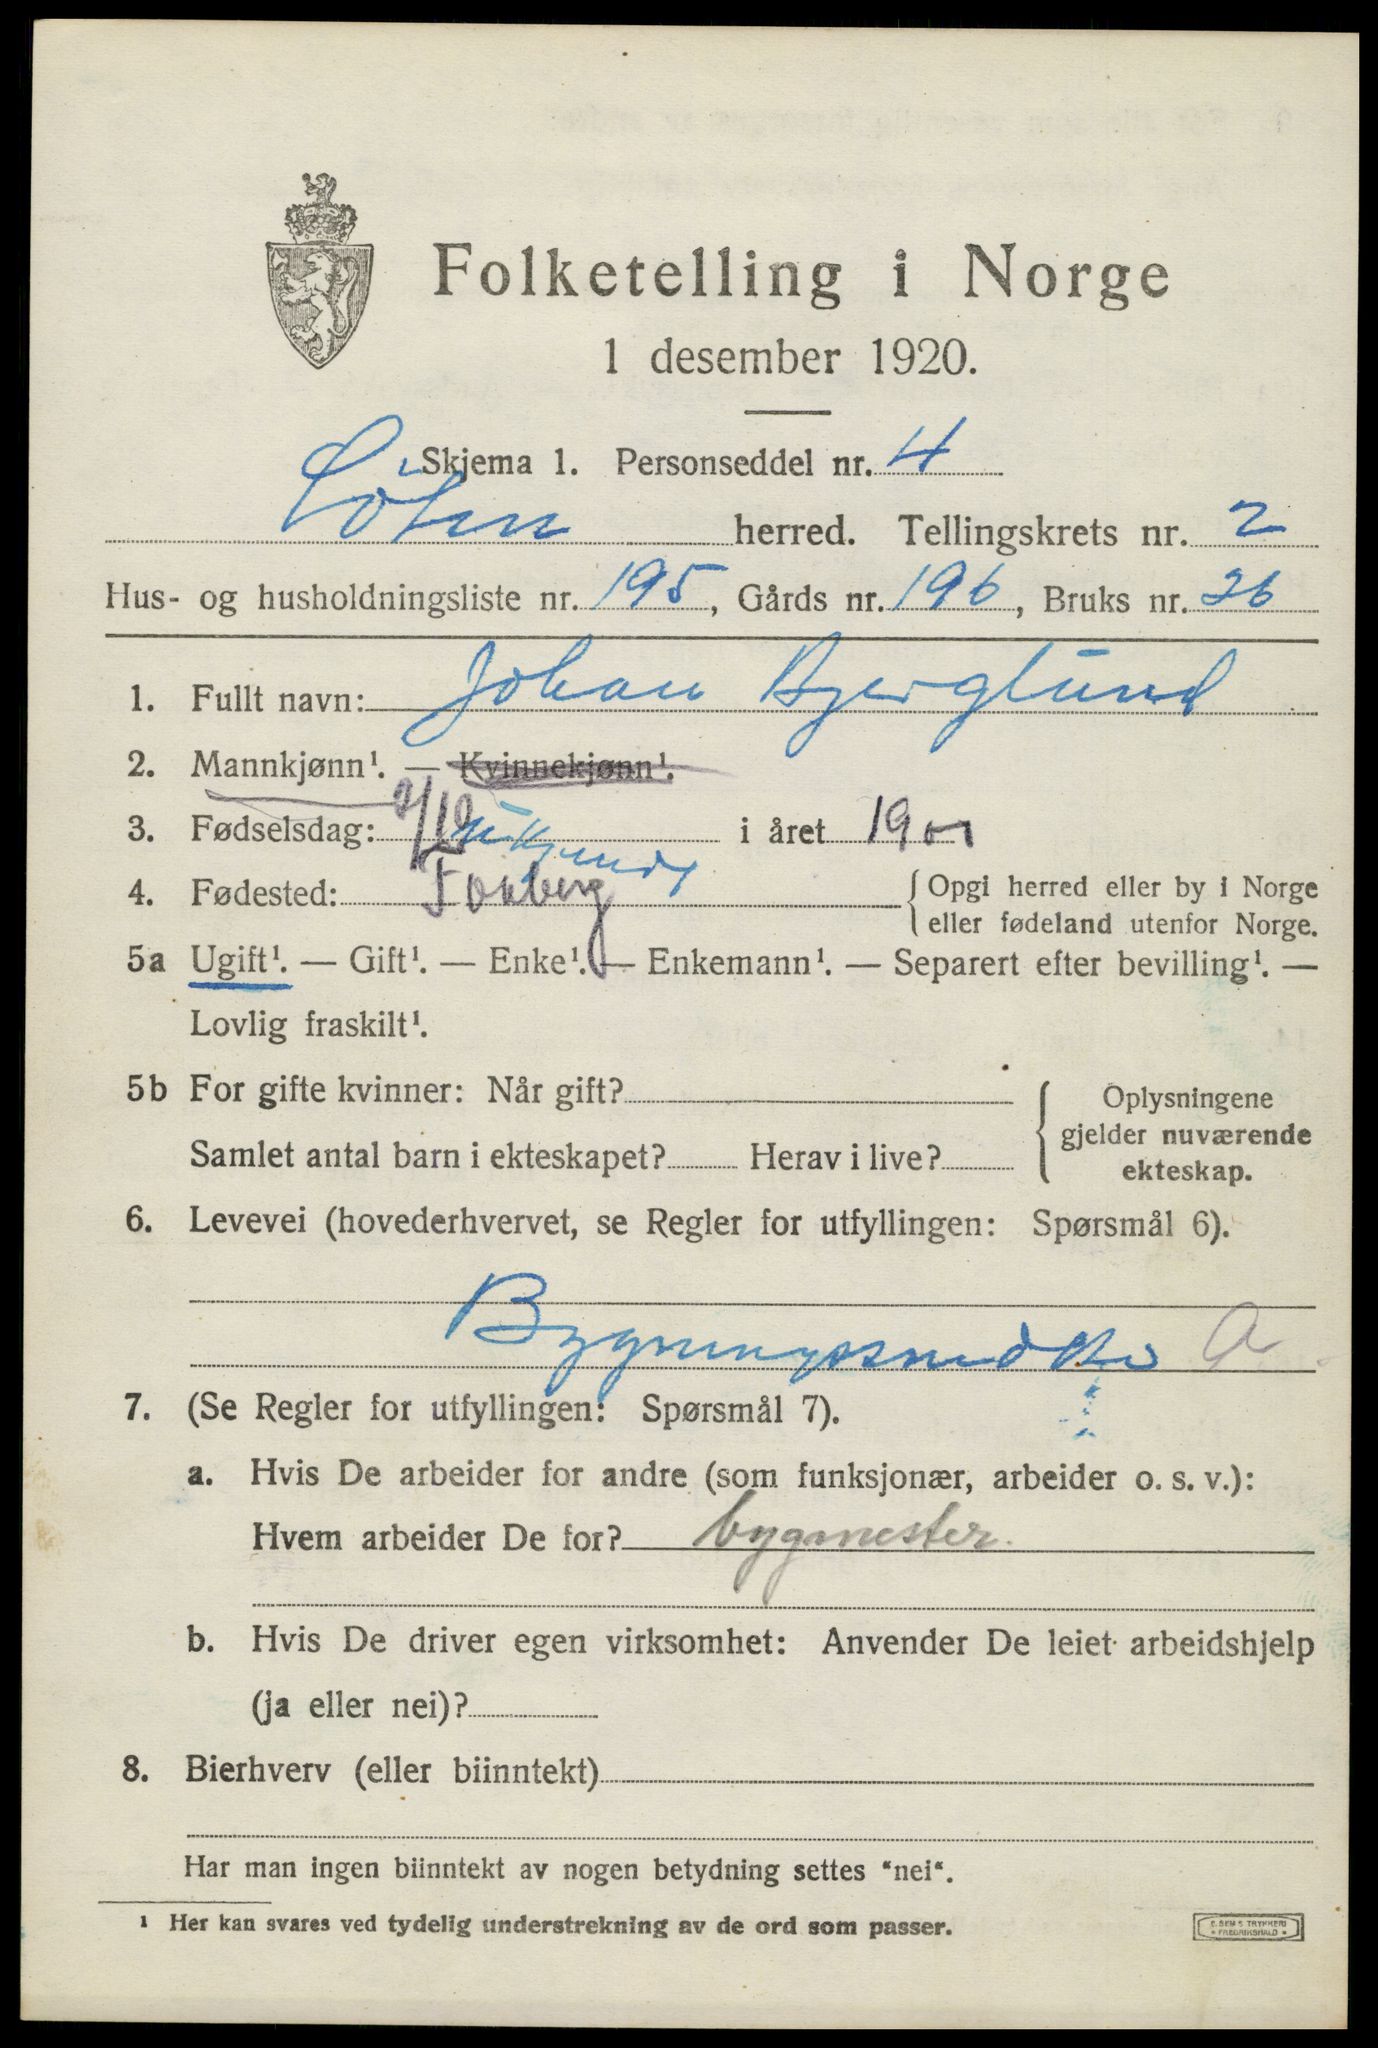 Folketelling i Norge
1 desember 1920.
Skjema 1. Personseddel nr. 4
Löten herred. Tellingskrets nr. 2
Hus- og husholdningsliste nr. 195, Gårds nr. 196, Bruks nr. 26
1. Fullt navn: Johan Bjerglund
2. Mannkjønn¹. — Kvinnekjønn¹.
3. Fødselsdag: ukjendt i året 19
4. Fødested: Fokberg { Opgi herred eller by i Norge
eller fødeland utenfor Norge.
5a Ugift¹. — Gift¹. — Enke¹. — Enkemann¹. — Separert efter bevilling¹. —
Lovlig fraskilt¹.
5b For gifte kvinner: Når gift?
Samlet antal barn i ekteskapet? Herav i live?
Oplysningene
gjelder nuværende
ekteskap.
6. Levevei (hovederhvervet, se Regler for utfyllingen: Spørsmål 6).
A
7. (Se Regler for utfyllingen: Spørsmål 7).
a. Hvis De arbeider for andre (som funksjonær, arbeider o. s. v.):
Hvem arbeider De for? bygmester.
b. Hvis De driver egen virksomhet: Anvender De leiet arbeidshjelp
(ja eller nei)?
8. Bierhverv (eller biinntekt)
Har man ingen biinntekt av nogen betydning settes "nei".
¹ Her kan svares ved tydelig understrekning av de ord som passer.
E. SEM'S TRYKKERI
* FREDRIKSHALD *